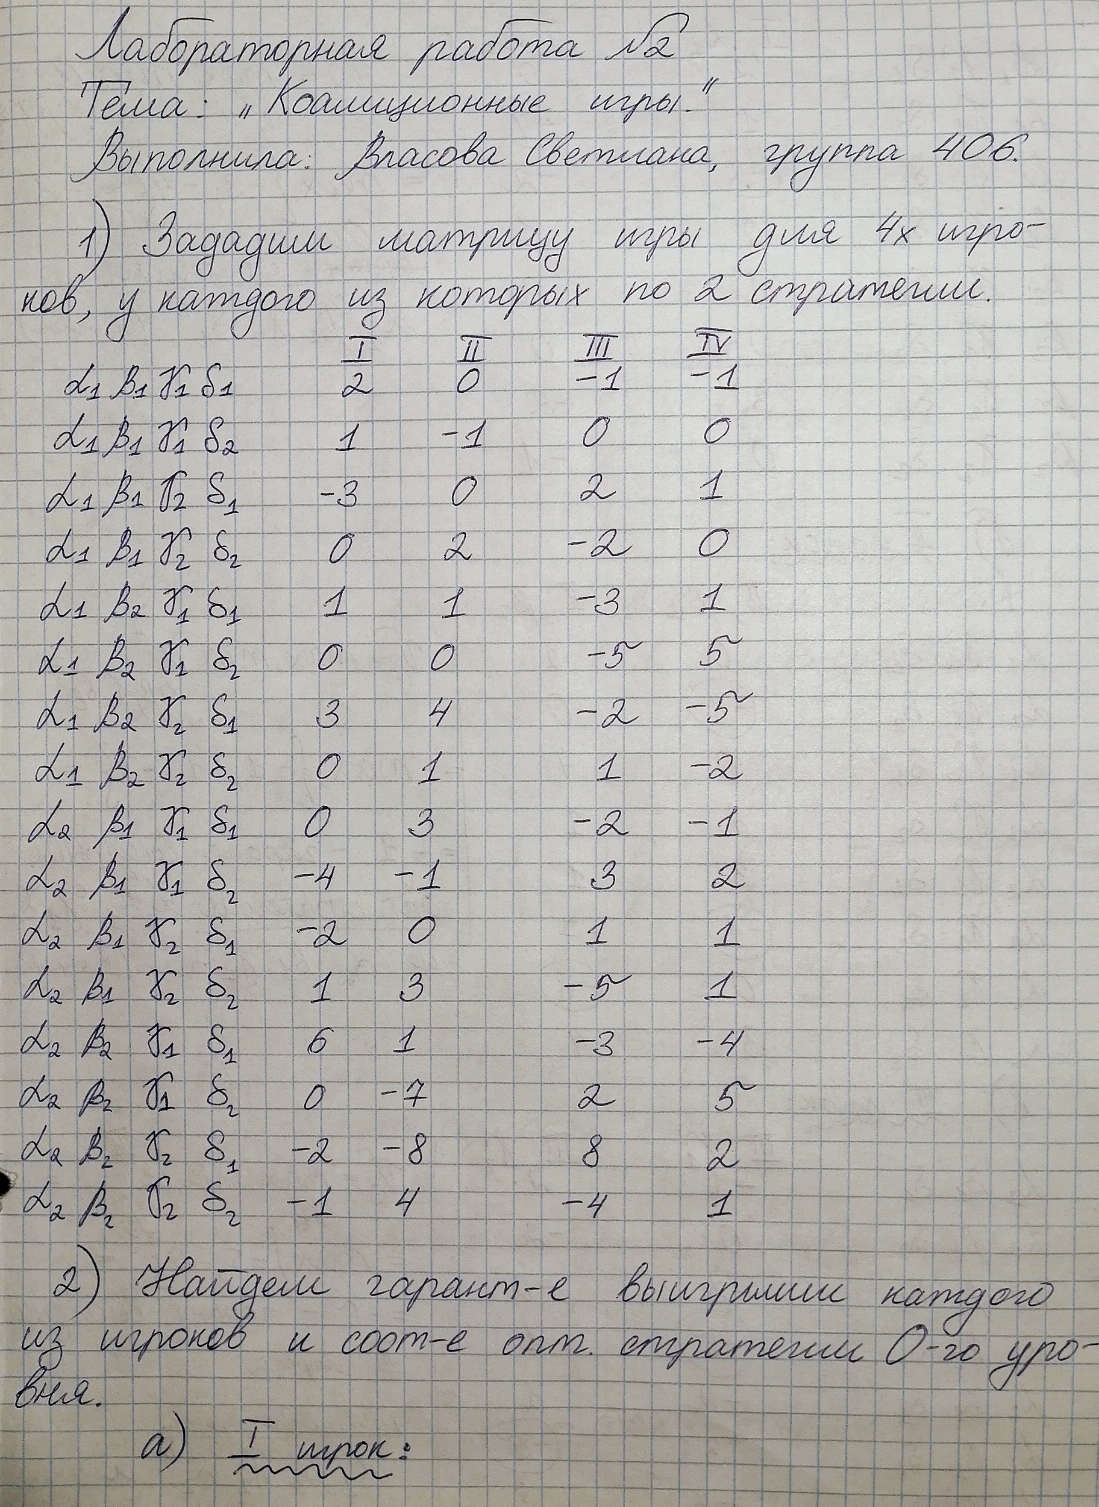 Лабораторная работа №2
Тема: „Коалиционные игры."
Выполнила: Власова Светлана, группа 406.
1) Зададим матрицу игры для 4х игро-
ков, у каждого из которых по 2 стратегии.
I II III IV
α1 β1 γ1 δ1 2 0 -1 -1
α1 β1 γ1 δ2 1 -1 0 0
α1 β1 γ2 δ1 -3 0 2 1
α1 β1 γ2 δ2 0 2 -2 0
α1 β2 γ1 δ1 1 1 -3 1
α1 β2 γ1 δ2 0 0 -5 5
α1 β2 γ2 δ1 3 4 -2 -5
α1 β2 γ2 δ2 0 1 1 -2
α2 β1 γ1 δ1 0 3 -2 -1
α2 β1 γ1 δ2 -4 -1 3 2
α2 β1 γ2 δ1 -2 0 1 1
α2 β1 γ2 δ2 1 3 -5 1
α2 β2 γ1 δ1 6 1 -3 -4
α2 β2 γ1 δ2 0 -7 2 5
α2 β2 γ2 δ1 -2 -8 8 2
α2 β2 γ2 δ2 -1 4 -4 1
2) Найдем гарант-е выигрыши каждого
из игроков и соот-е опт. стратегии 0-го уро-
вня.
а) I игрок: